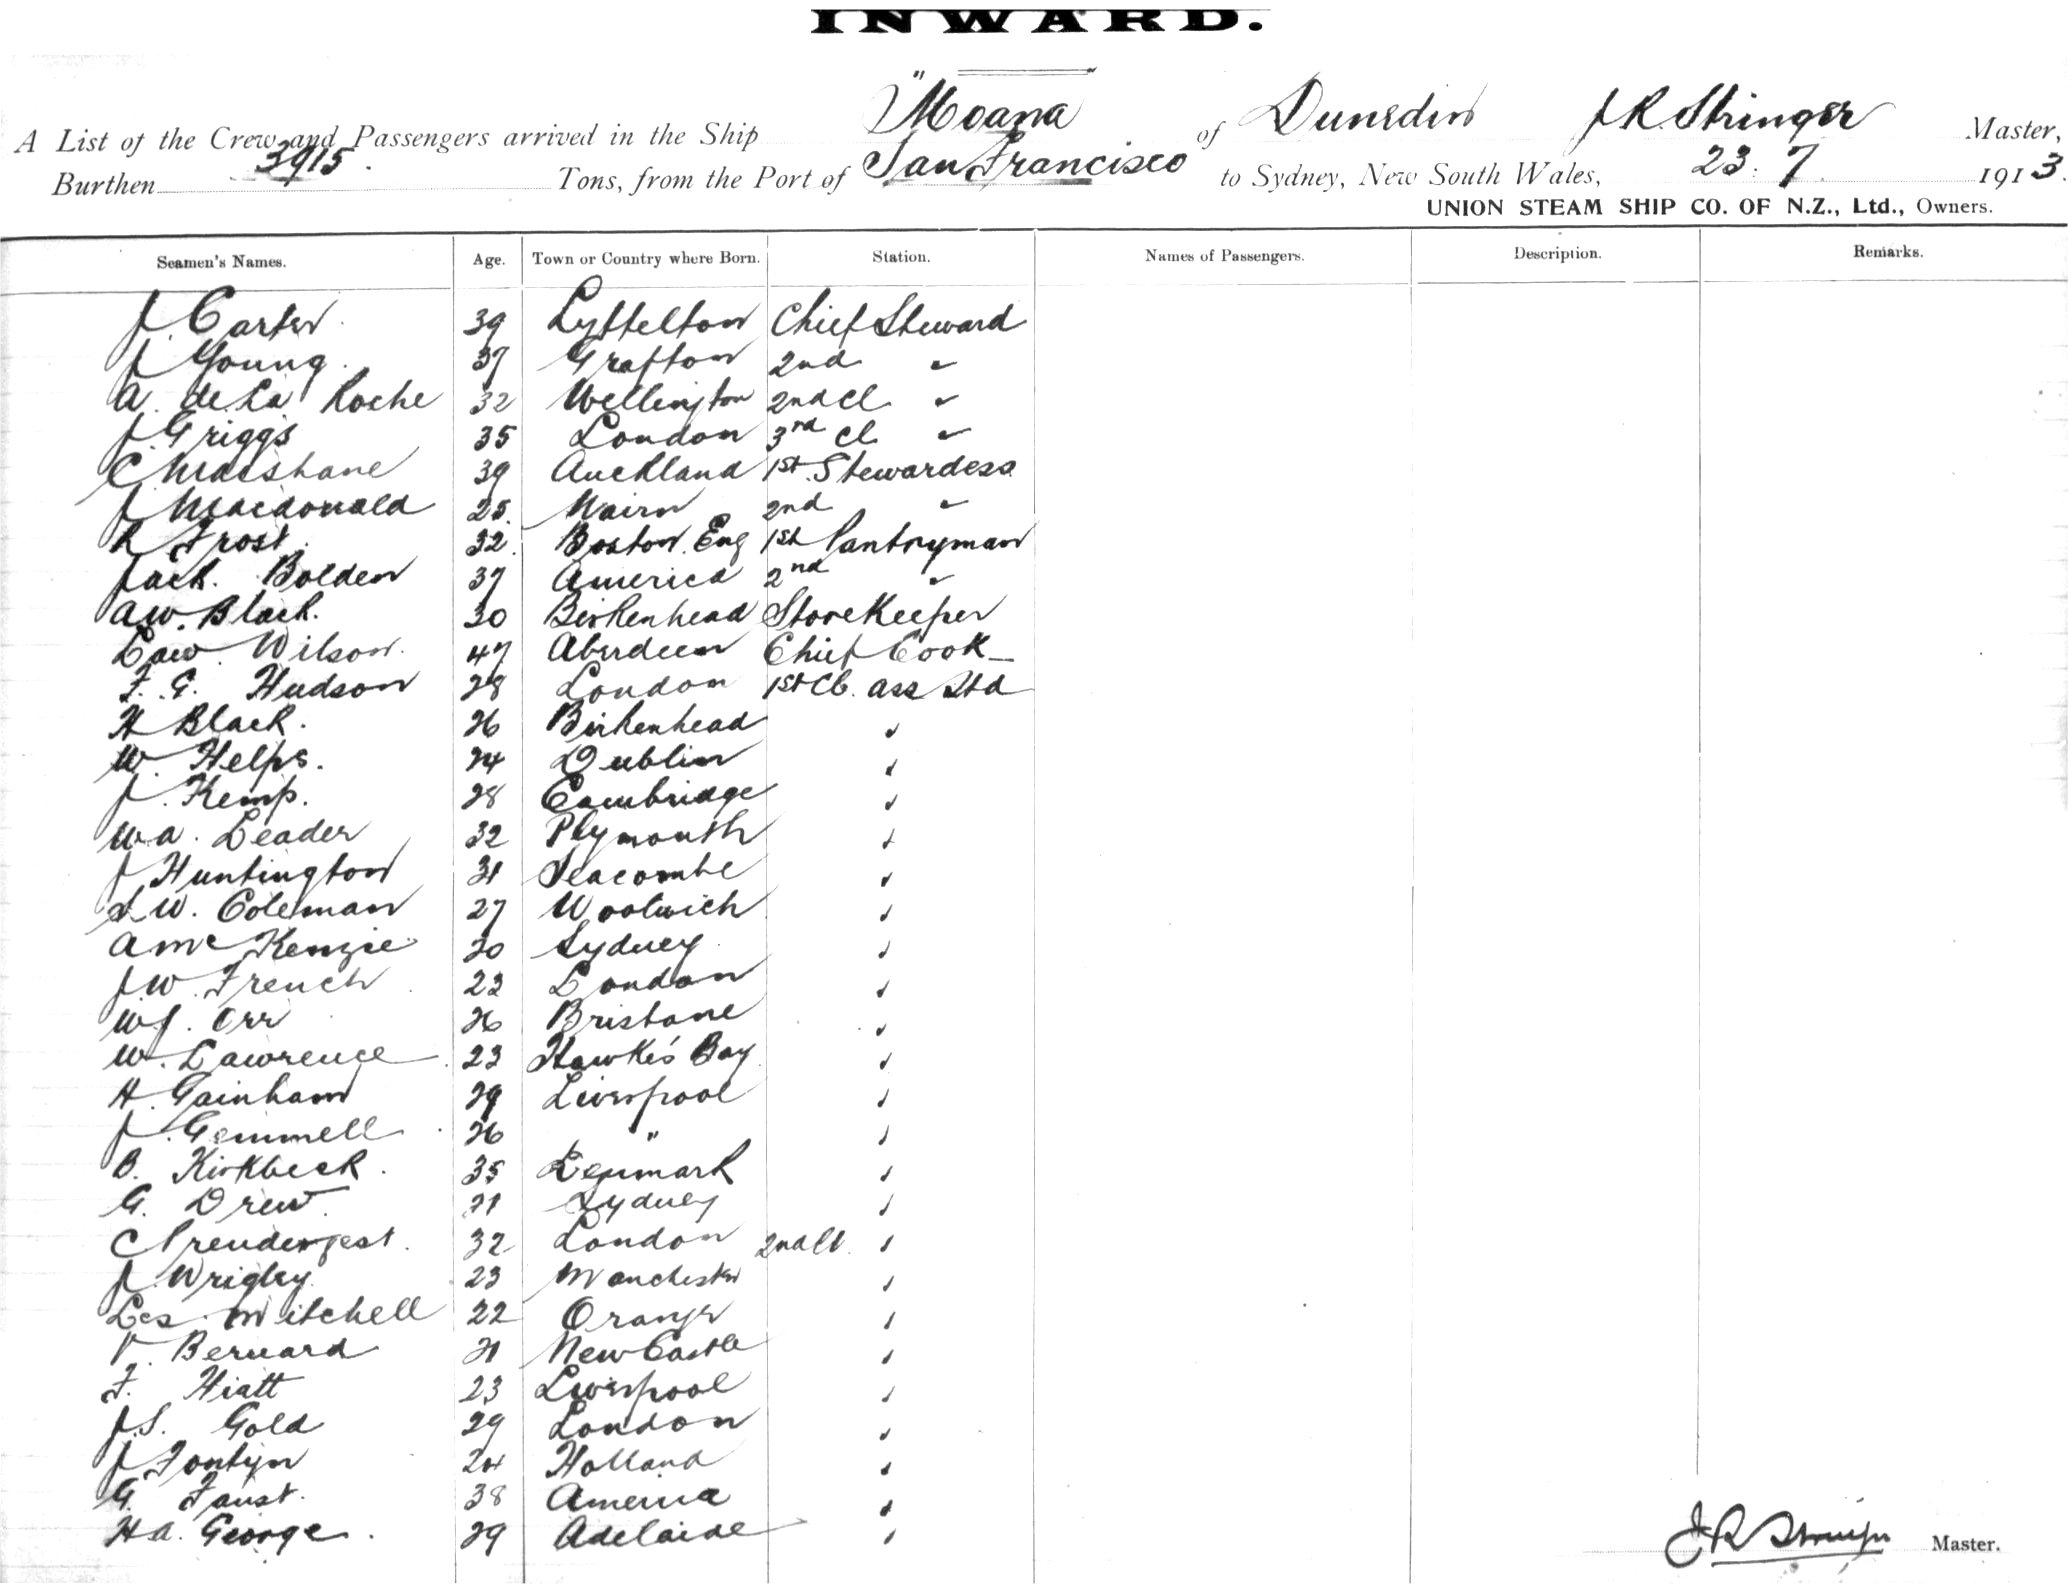 INWARD.
A List of the Crew and Passengers arrived in the Ship "Moana of Dunedin J R. Stringer Master,
Burthen 3915. Tons, from the Port of San Francisco to Sydney, New South Wales, 23. 7 1913.
UNION STEAM SHIP CO. OF N.Z., Ltd., Owners.
Seamen's Names. Age. Town or Country where Born. Station. Names of Passengers. Description. Remarks.
J. Carter 39 Lyttelton Chief Steward
J Young 37 Grafton 2nd "
A. de La Roche 32 Wellington 2nd Cl "
J. Griggs 35 London 3rd Cl "
C 39 Auckland 1st Stewardess
J Macdonald 25 Nairn 2nd "
R Frost 32 Boston. Eng 1st Pantryman
Jack. Bolden 37 America 2nd "
A W. Black. 30 Birkenhead Storekeeper
Law Wilson. 47 Aberdeen Chief Cook
F. G. Hudson 28 London 1st Cl. ass Std
H Black. 26 Birkenhead "
W. Helps. 24 Dublin "
J. Kemp. 28 Cambridge "
W A. Leader 32 Plymouth "
J Huntington 31 Seacombe "
L W. Coleman 27 Woolwich "
A McKenzie 20 Sydney "
J. W. French 23 London "
W J. Orr 26 Brisbane "
W. Lawrence 23 Hawke's Bay "
H. Gainham 29 Liverpool "
J. Gemmell 26 " "
B. Kirkbeck. 35 Denmark "
G. Drew. 21 Sydney "
C Prendergest. 32 London 2nd Cl. "
J. Wrigley 23 Manchester "
Les. Mitchell 22 Orange "
V. Bernard 21 New Castle "
F. Hiatt 23 Liverpool "
J. S. Gold 29 London "
J Fontyn 24 Holland "
G. Faust. 38 America "
H A. George. 29 Adelaide "
J R Stringer Master.